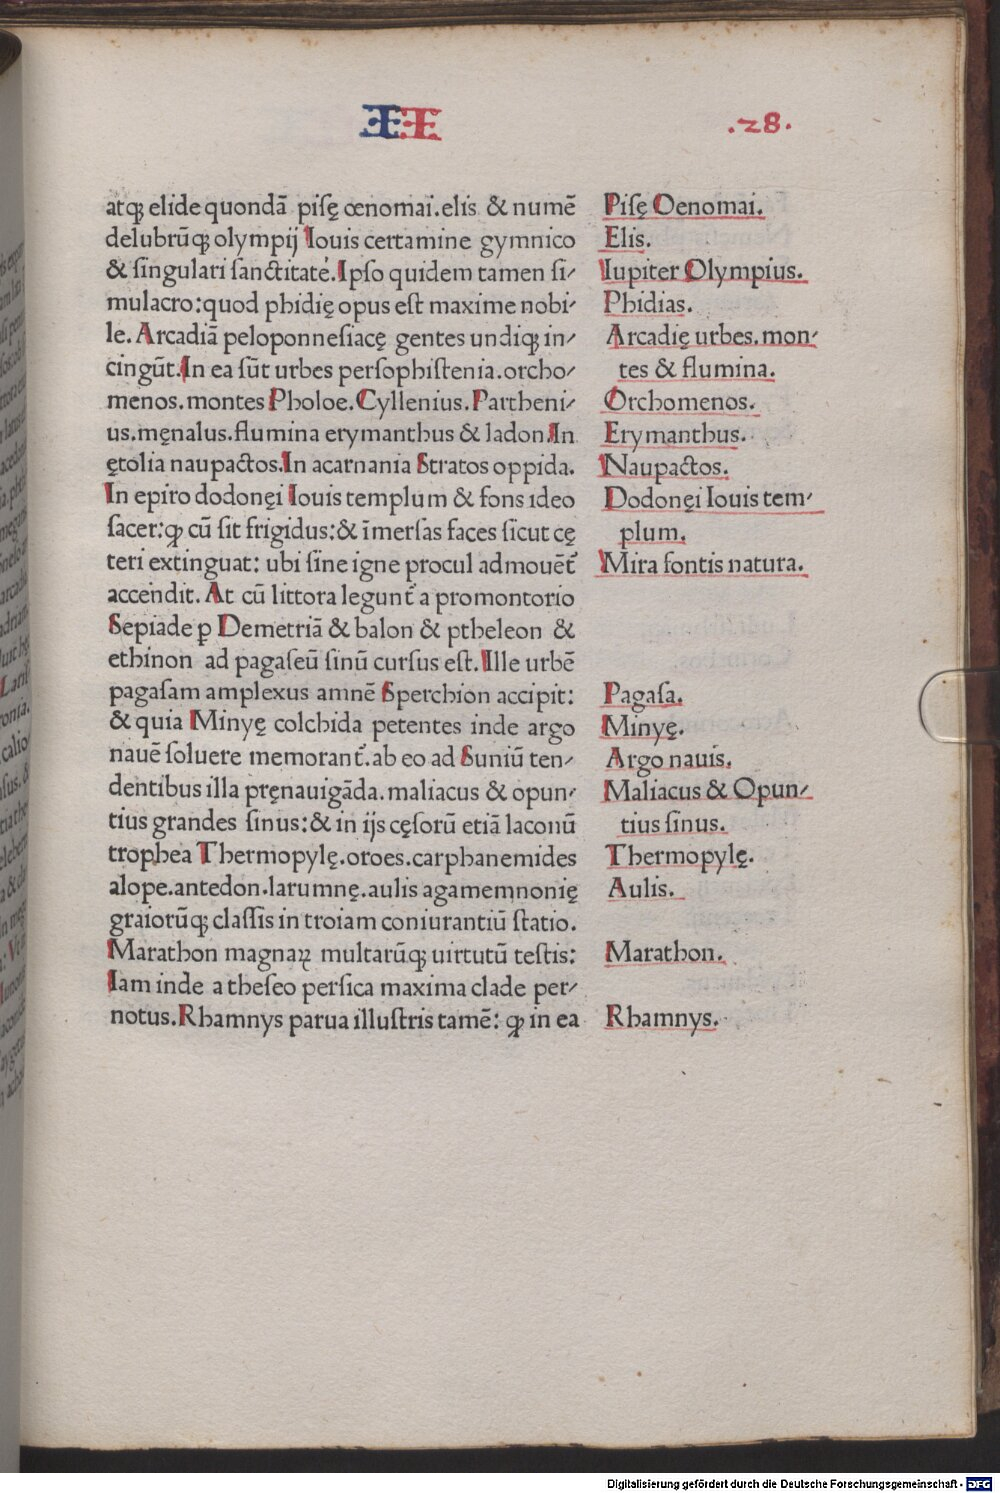 II .28.
atqꝫ elide quondā piſę œnomai.elis & numē
delubrūqꝫ olympij Iouis certamine gymnico
& ſingulari ſanctitate.Ipſo quidem tamen ſi-
mulacro:quod phidię opus eſt maxime nobi-
le. Arcadiā peloponneſiacę gentes undiqꝫ in-
cingūt.In ea ſūt urbes perſophiſtenia.orcho-
menos.montes Pholoe.Cyllenius.Partheni-
us.męnalus.flumina erymanthus & ladon.In
ętolia naupactos.In acarnania Stratos oppida.
In epiro dodonęi Iouis templum & fons ideo
ſacer:ꝙ cū ſit frigidus:& īmerſas faces ſicut cę
teri extinguat: ubi ſine igne procul admouēt᷑
accendit. At cū littora legunt᷑ a promontorio
Sepiade ꝑ Demetriā & balon & ptheleon &
ethinon ad pagaſeū ſinū curſus eſt.Ille urbē
pagaſam amplexus amnē Sperchion accipit:
& quia Minyę colchida petentes inde argo
nauē ſoluere memorant᷑.ab eo ad Suniū ten-
dentibus illa pręnauigāda.maliacus & opun-
tius grandes ſinus:& in ijs cęſorū etiā laconū
trophea Thermopylę.oroes.carphanemides
alope.antedon.larumnę.aulis agamemnonię
graiorūqꝫ claſſis in troiam coniurantiū ſtatio.
Marathon magnaꝝ multarūqꝫ uirtutū teſtis:
Iam inde a theſeo perſica maxima clade per-
notus.Rhamnys parua illuſtris tamē: ꝙ in ea
Piſę Oenomai.
Elis.
Iupiter Olympius.
Phidias.
Arcadię urbes.mon-
tes & flumina.
Orchomenos.
Erymanthus.
Naupactos.
Dodonęi Iouis tem-
plum.
Mira fontis natura.
Pagaſa.
Minyę.
Argo nauis.
Maliacus & Opun-
tius ſinus.
Thermopylę.
Aulis.
Marathon.
Rhamnys.
Digitalisierung gefördert durch die Deutsche Forschungsgemeinschaft - DFG